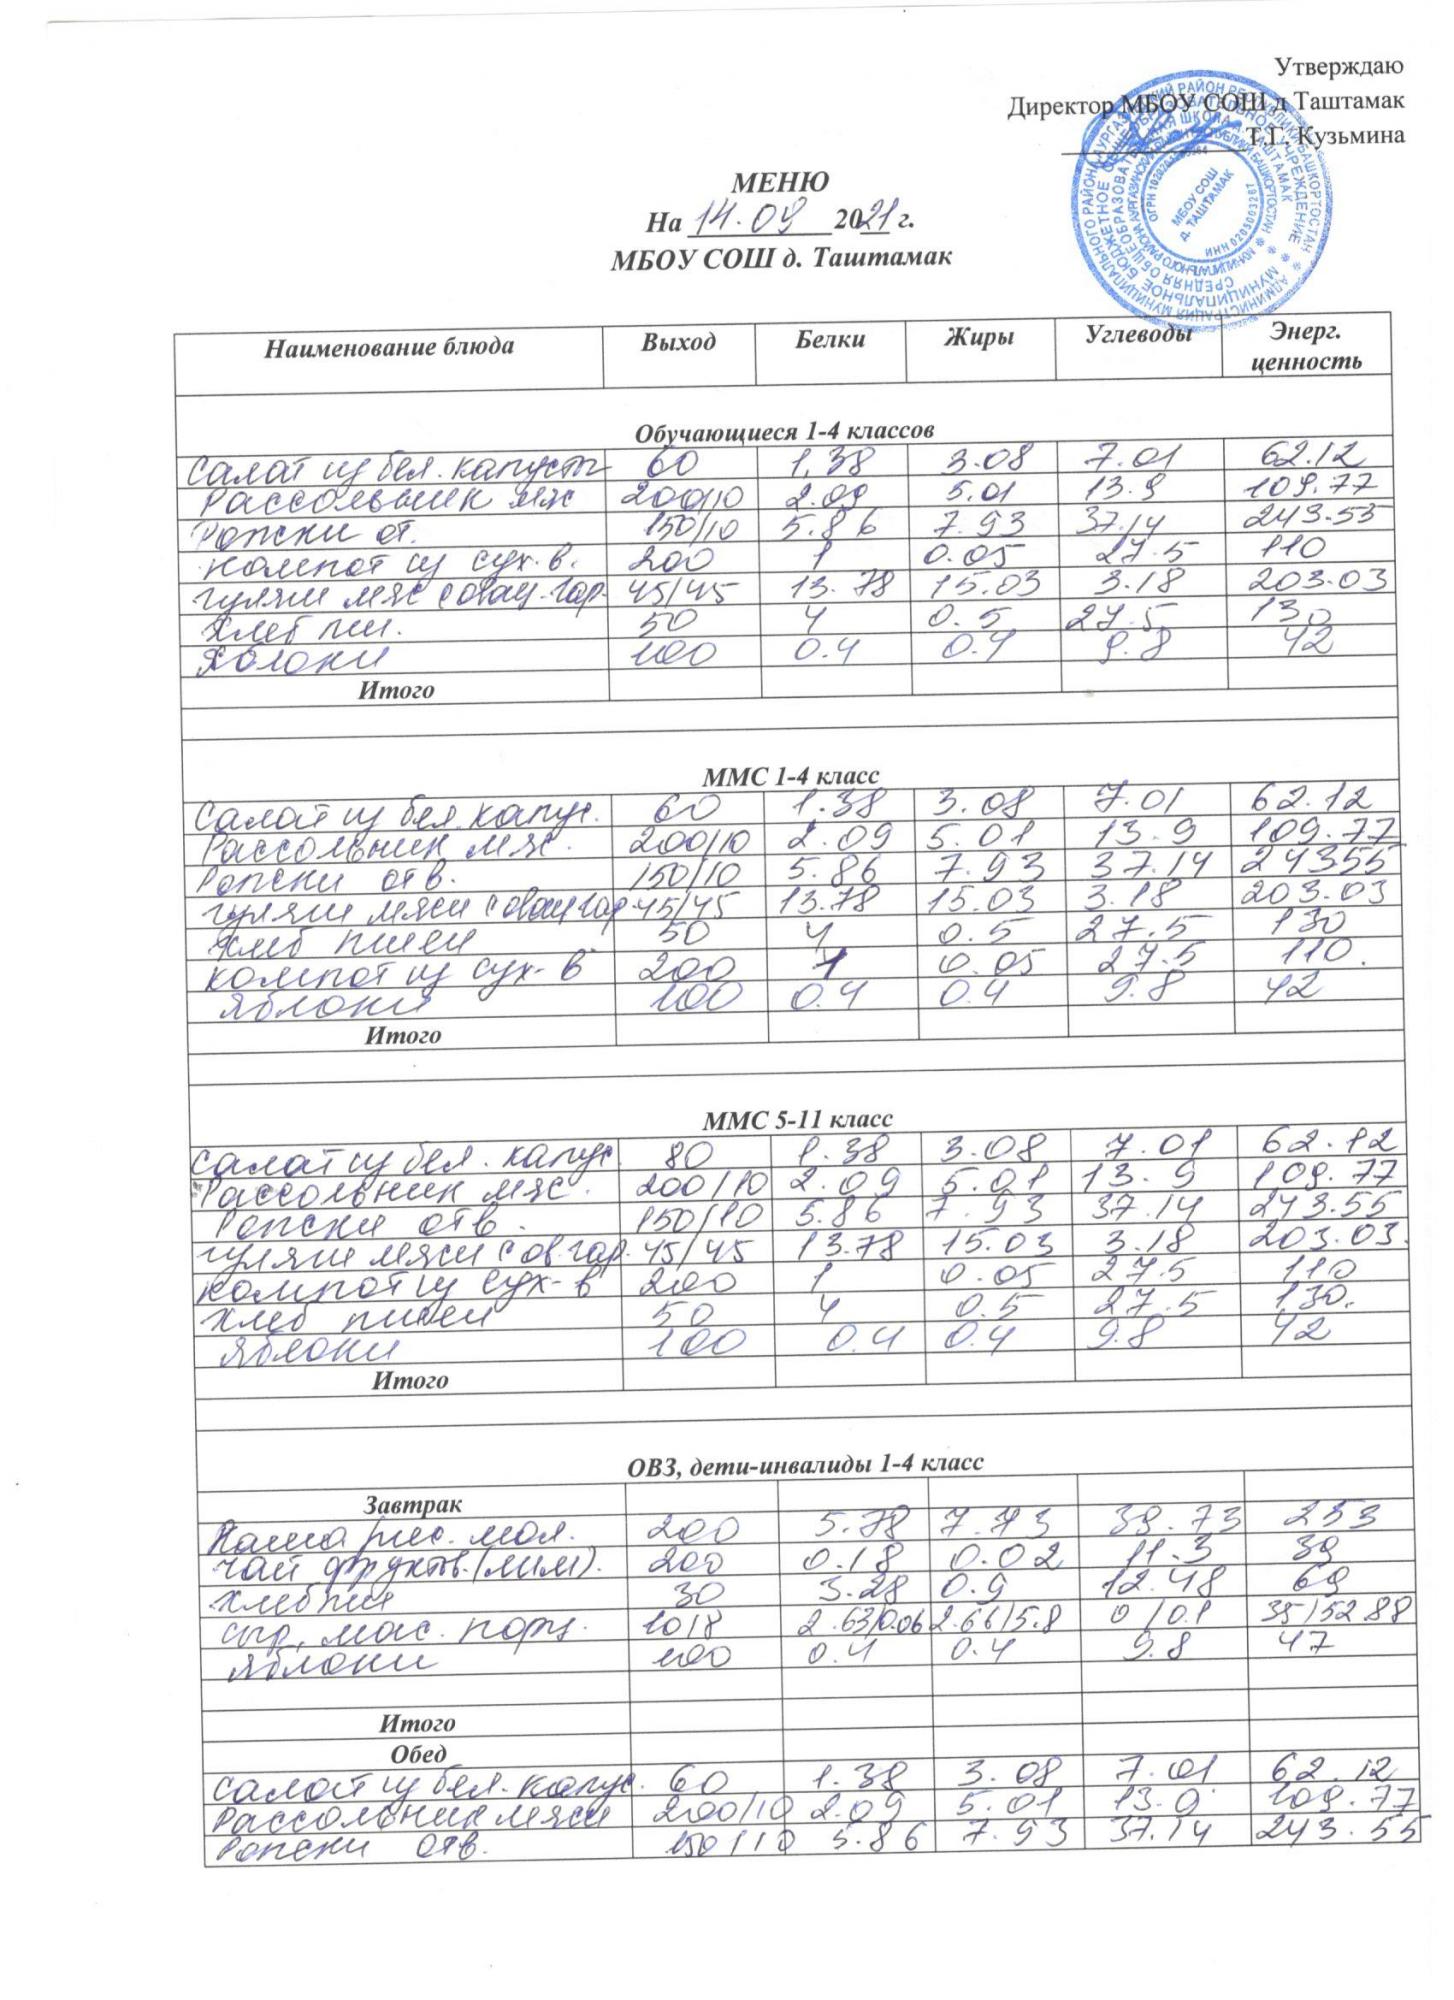 Утверждаю
Директор МБОУ СОШ д Таштамак
Т.Г. Кузьмина
МБОУ СОШ
Д. ТАШТАМАК
МЕНЮ
На 14.09 2021 г.
МБОУ СОШ д. Таштамак
Наименование блюда Выход Белки Жиры Углеводы Энерг. ценность
Обучающиеся 1-4 классов
Салат из бел. капусты 60 1,38 3.08 7.01 62.12
Рассольник мяс 200/10 2.09 5.01 13.9 109.77
Рожки от. 150/10 5.86 7.93 37.14 243.55
Компот из сух. в. 200 1 0.05 27.5 110
гуляш мяс с овощ. гар. 45/45 13.78 15.03 3.18 203.03
Хлеб пш. 50 4 0.5 27.5 130
Яблоки 100 0.4 0.4 9.8 42
Итого
ММС 1-4 класс
Салат из бел. капус. 60 1.38 3.08 7.01 62.12
Рассольник мяс. 200/10 2.09 5.01 13.9 109.77
Рожки отв. 150/10 5.86 7.93 37.14 24355
гуляш мясн с овощ гар 45/45 13.78 15.03 3.18 203.03
Хлеб пшен 50 4 0.5 27.5 130
компот из сух-в 200 1 0.05 27.5 110.
Яблоки 100 0.4 0.4 9.8 42
Итого
ММС 5-11 класс
Салат из бел. капус. 80 1.38 3.08 7.01 62.12
Рассольник мяс. 200/10 2.09 5.01 13.9 109.77
Рожки отв. 150/10 5.86 7.93 37.14 243.55
гуляш мясн с ов. гар. 45/45 13.78 15.03 3.18 203.03.
компот из сух-в 200 1 0.05 27.5 110
Хлеб пшен 50 4 0.5 27.5 130.
Яблоки 100 0.4 0.4 9.8 42
Итого
ОВЗ, дети-инвалиды 1-4 класс
Завтрак
Каша рис. мол. 200 5.78 7.73 39.73 253
Чай фруктов. (лим). 200 0.18 0.02 11.3 39
Хлеб пш 30 3.28 0.9 12.48 69
сыр, мас. порц. 10/8 2.63/0.06 2.66/5.8 0/0.1 35/52.88
Яблоки 100 0.4 0.4 9.8 47
Итого
Обед
Салат из бел. капус. 60 1.38 3.08 7.01 62.12
Рассольник мясн 200/10 2.09 5.01 13.9 109.77
Рожки отв. 150/10 5.86 7.93 37.14 243.55